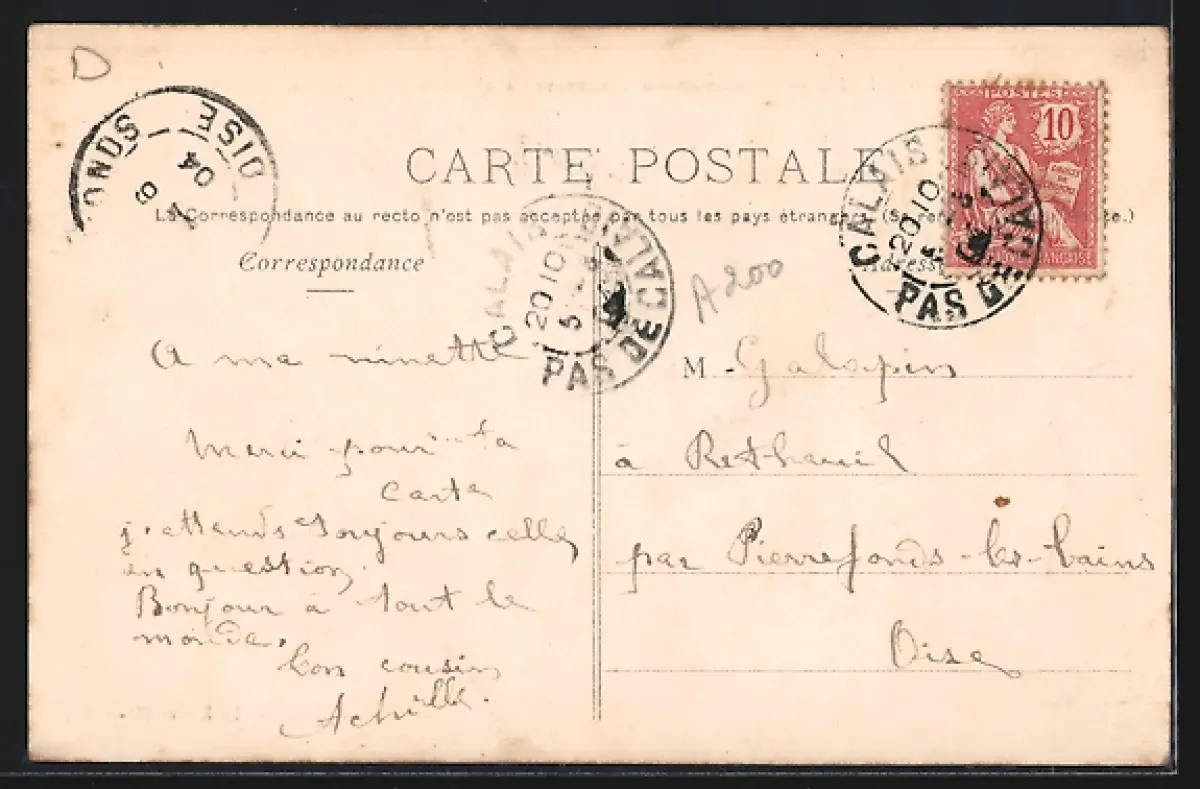 D
OISE
ONDS
04
CARTE POSTALE
La Correspondance au recto n'est pas acceptée par tous les pays étrangers (Se
Correspondance
Adresse
POSTES
10
CALAIS
20 10
5
PAS DE CALAIS
CALAIS
20 10
5
PAS DE CALAIS
A 200
A ma ninette
Merci pour ta
carte
j'attends toujours celle
en question.
Bonjour à tout le
monde.
Ton cousin
Achille.
M. Galopin
à Retheuil
par Pierrefonds-les-bains
Oise